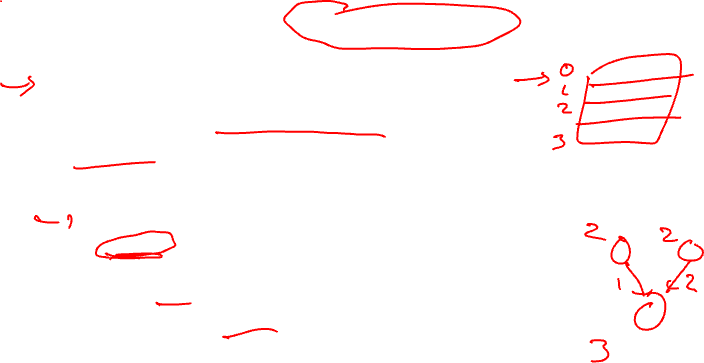 0
1
2
3
2 2
1 2
3